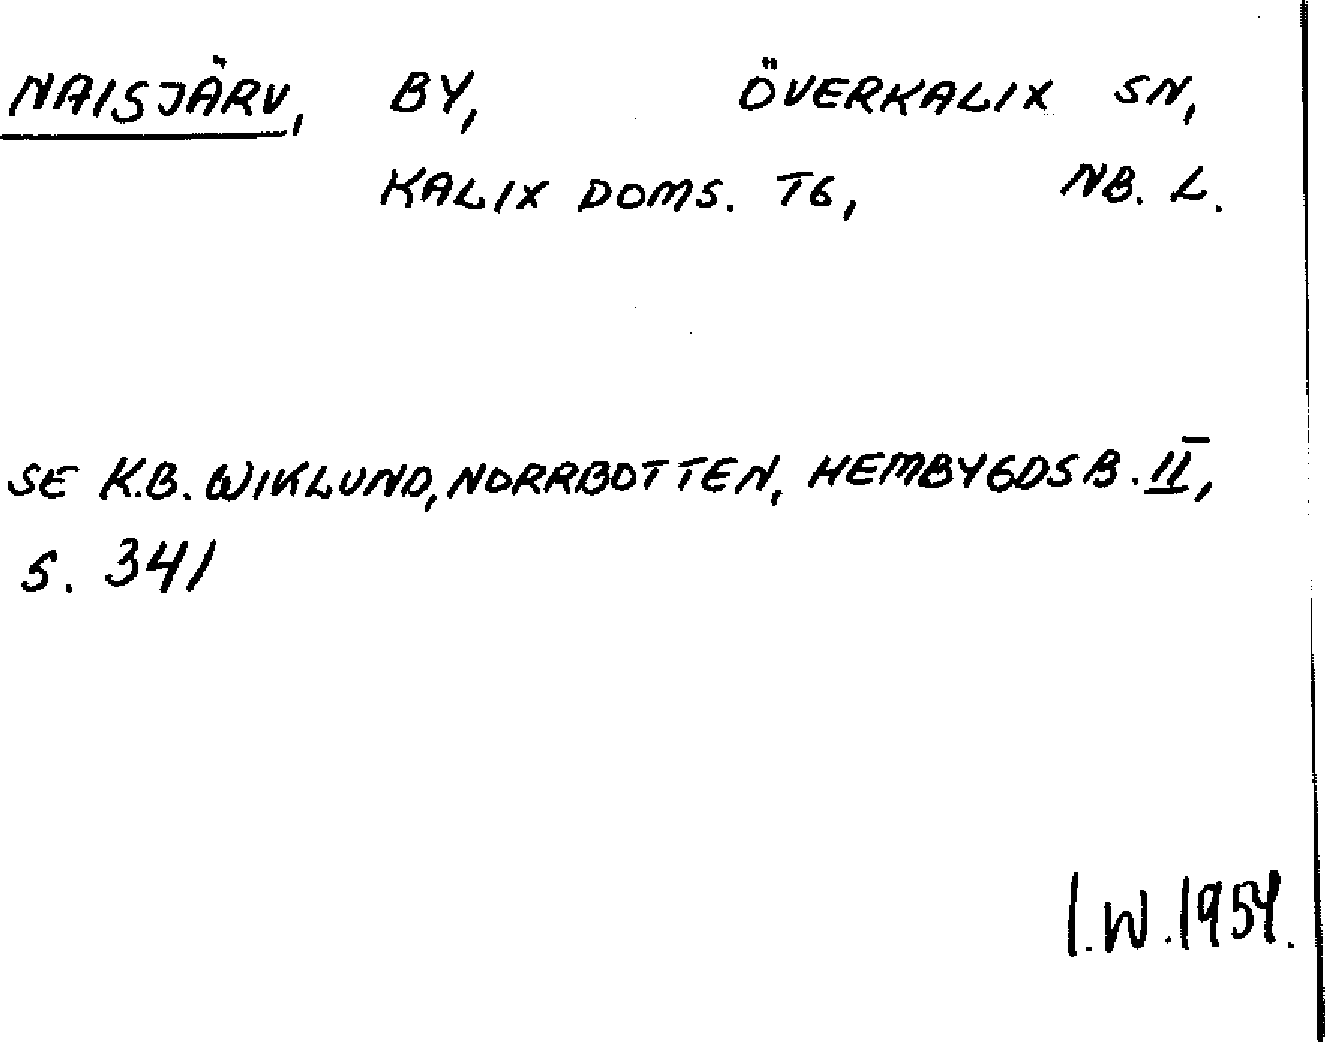 NAISJÄRV, BY, ÖVERKALIX SN,
KALIX DOMS. TG, NB. L.
SE K.B. WIKLUND, NORRBOTTEN, HEMBYGDSB. II,
S. 341
I.W. 1954.